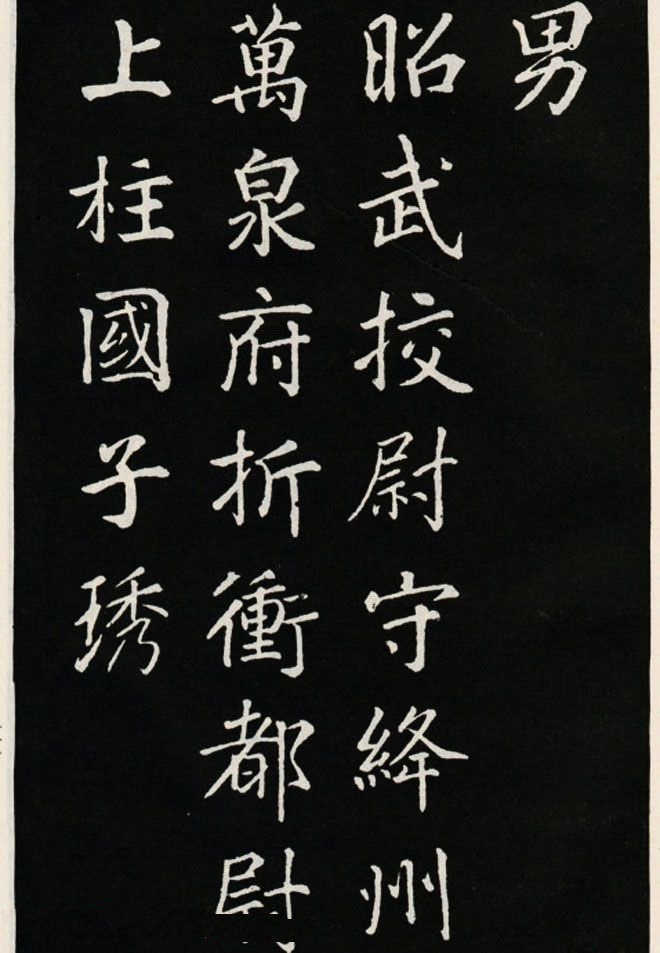 男
昭武挍尉守絳州
萬泉府折衝都尉
上柱國子琇